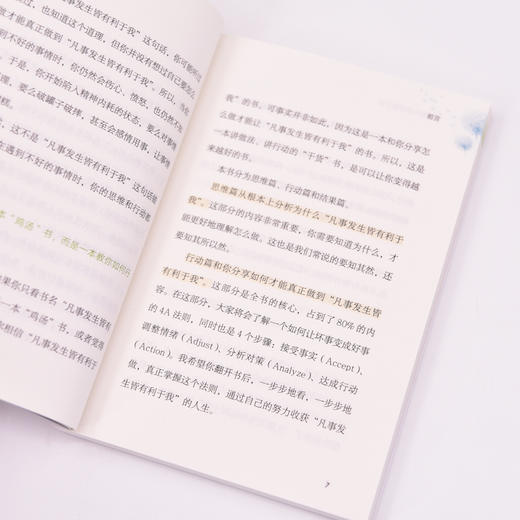 生皆有利于我”这句话，你可能听过
过，也知道这个道理，但你并没有想过自己要怎么
才能真正做到“凡事发生皆有利于我”。所以，当你
的事情时，你仍然会伤心、愤怒，也仍然不知
于是，你开始陷入精神内耗的状态，要么对事情
要么破罐子破摔，甚至会感情用事，让事情
糕。
，这不是“凡事发生皆有利于我”这句话
生遇到不好的事情时，你的思维和行动都
“鸡汤”书，而是一本教你如何
果你只看书名“凡事发生皆有
一本“鸡汤”书，或者觉得
相信“凡事发生皆有利于
前言
我”的书。可事实并非如此，因为这是一本和你分享怎
么做才能让“凡事发生皆有利于我”的书。所以，这是
一本讲做法、讲行动的“干货”书，是可以让你变得越
来越好的书。
本书分为思维篇、行动篇和结果篇。
思维篇从根本上分析为什么“凡事发生皆有利于
我”。这部分的内容非常重要，你需要知道为什么，才
能更好地理解怎么做。这也是我们常说的要知其然，还
要知其所以然。
行动篇和你分享如何才能真正做到“凡事发生皆
有利于我”。这部分是全书的核心，占到了 80% 的内
容。在这部分，大家将会了解一个如何让坏事变成好事
的 4A 法则，同时也是 4 个步骤：接受事实（Accept）、
调整情绪（Adjust）、分析对策（Analyze）、达成行动
（Action）。我希望你翻开书后，一步步地看，一步步地
做，真正掌握这个法则，通过自己的努力收获“凡事发
生皆有利于我”的人生。
7